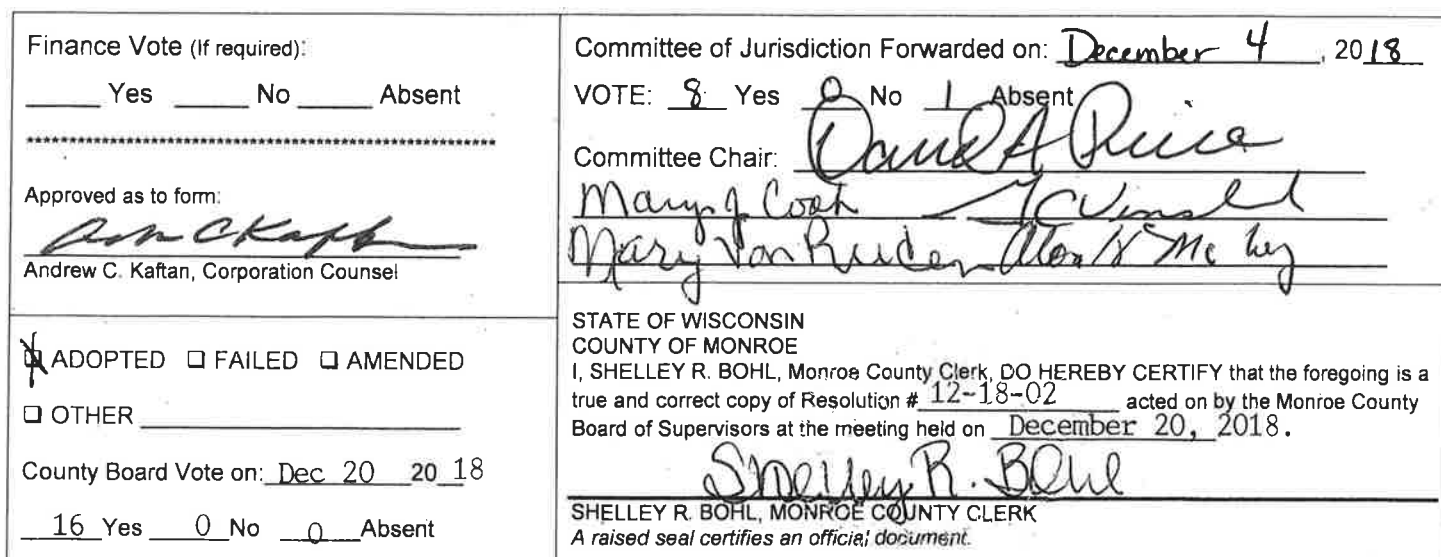 Finance Vote (If required):
____ Yes ____ No ____ Absent
************************************************************
Approved as to form:
Andrew C. Kaftan, Corporation Counsel
ADOPTED ☐ FAILED ☐ AMENDED
☐ OTHER ____
County Board Vote on: Dec 20 20 18
16 Yes 0 No 0 Absent
Committee of Jurisdiction Forwarded on: December 4, 2018
VOTE: 8 Yes 0 No 1 Absent
Committee Chair: David A Pierce
Mary J. Cook
Mary Von Ruden
STATE OF WISCONSIN
COUNTY OF MONROE
I, SHELLEY R. BOHL, Monroe County Clerk, DO HEREBY CERTIFY that the foregoing is a
true and correct copy of Resolution # 12-18-02 acted on by the Monroe County
Board of Supervisors at the meeting held on December 20, 2018.
Shelley R. Bohl
SHELLEY R. BOHL, MONROE COUNTY CLERK
A raised seal certifies an official document.